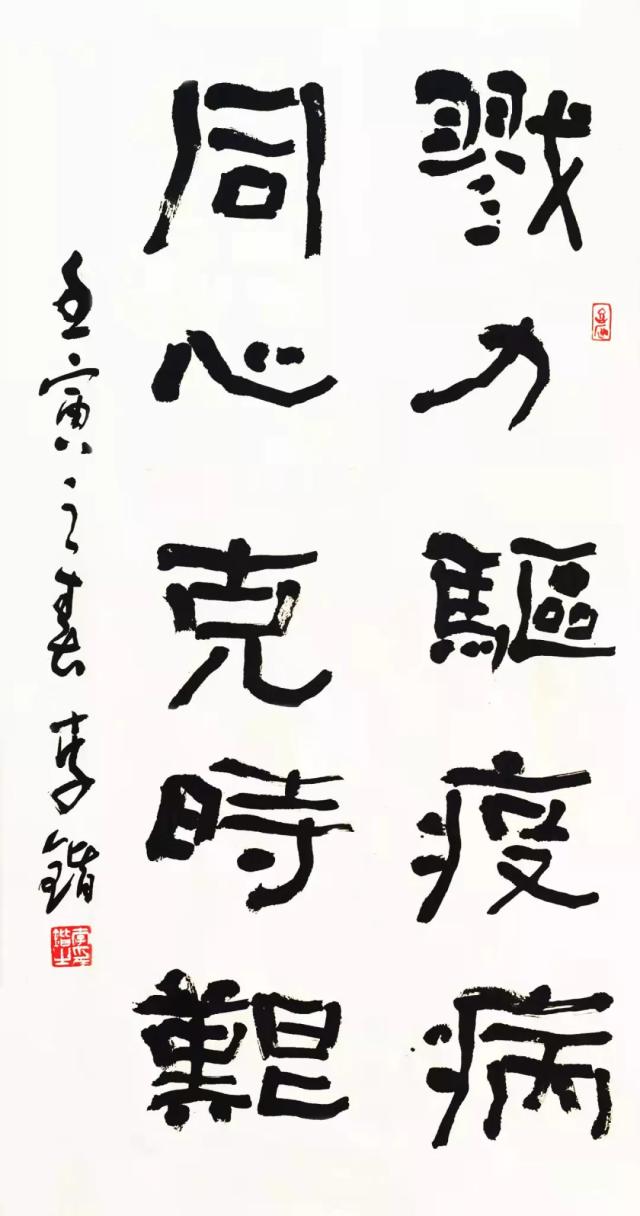 戮力驅疫病
同心克時艱
壬寅之春李鍇